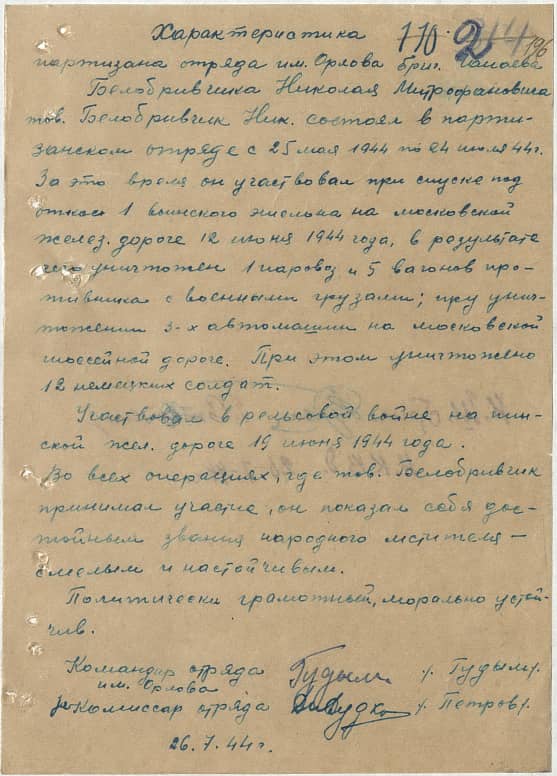 Характеристика
партизана отряда им. Орлова бриг. Чапаева
Белобривчика Николая Митрофановича
тов. Белобривчик Ник. состоял в парти-
занском отряде с 25 мая 1944 по 24 июля 44 г.
За это время он участвовал при спуске под
откос 1 воинского эшелона на московской
желез. дороге 12 июня 1944 года, в результате
чего уничтожен 1 паровоз и 5 вагонов про-
тивника с военными грузами; при унич-
тожении 3-х автомашин на московской
шоссейной дороге. При этом уничтожено
12 немецких солдат.
Участвовал в рельсовой войне на
ской жел. дороге 19 июня 1944 года.
Во всех операциях, где тов. Белобривчик
принимал участие, он показал себя дос-
тойным звания народного мстителя –
смелым и настойчивым.
Политически грамотный, морально устой-
чив.
Командир отряда Гудым /. Гудым/.
им. Орлова
Комиссар отряда /. Петров/.
26.7.44 г.
196